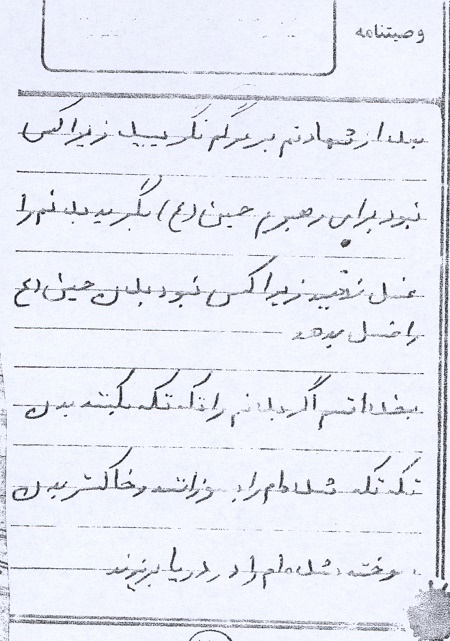 وصیتنامه
بعد از شهادتم بر مرگم نگریید زیرا کسی
نبود برای رهبرم حسین (ع) بگرید بدنم را
غسل ندهید زیرا کسی نبود بدن حسین (ع
را غسل بدهد
بخدا قسم اگر بدنم را تکه تکه بکنند بدن
تکه تکه شده‌ام را بسوزانند و خاکستر بدن
سوخته شده‌ام را در دریا بریزند